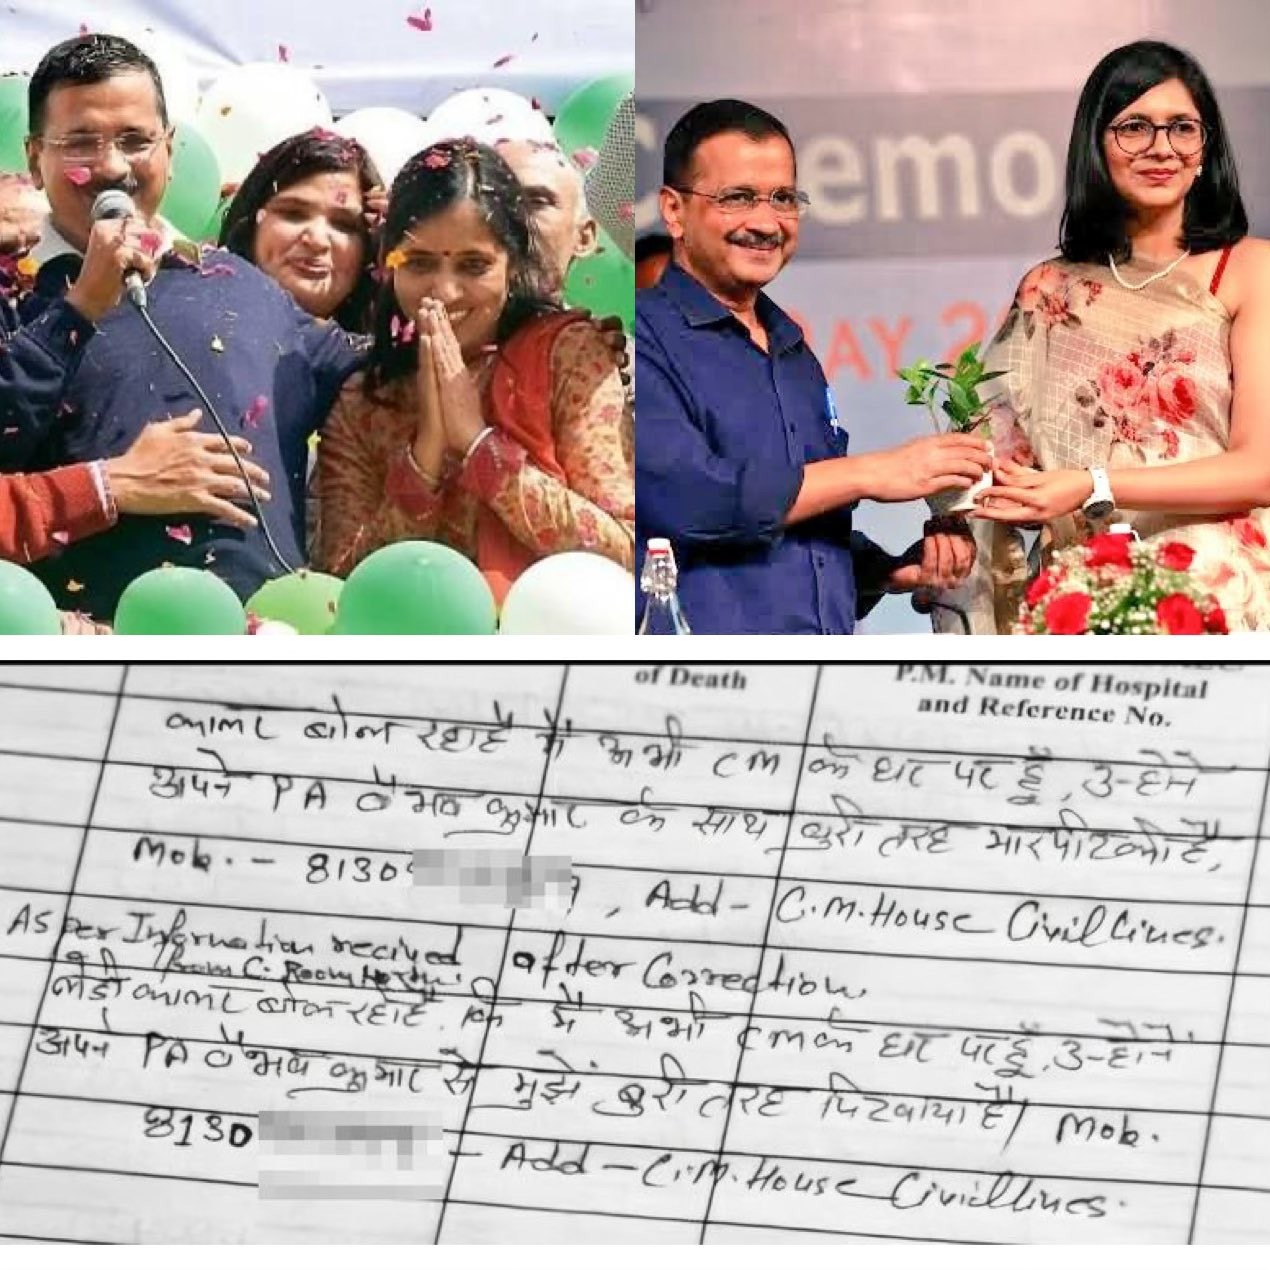 emo
AY S
of Death
P.M. Name of Hospital
and Reference No.
कालर बोल रहा है मैं अभी CM के घर पर हूँ, उन्होंने
अपने PA वैभव कुमार के साथ बुरी तरह मारपीट की है,
Mob. - 8130 , Add - C.M. House Civil Lines.
As per Information recived after Correction.
from C. Room
लेडी कालर बोल रही है. कि मैं अभी CM के घर पर हूँ, उन्होंने
अपने PA वैभव कुमार से मुझे बुरी तरह पिटवाया है। Mob.
8130 - Add - C.M. House Civil lines.